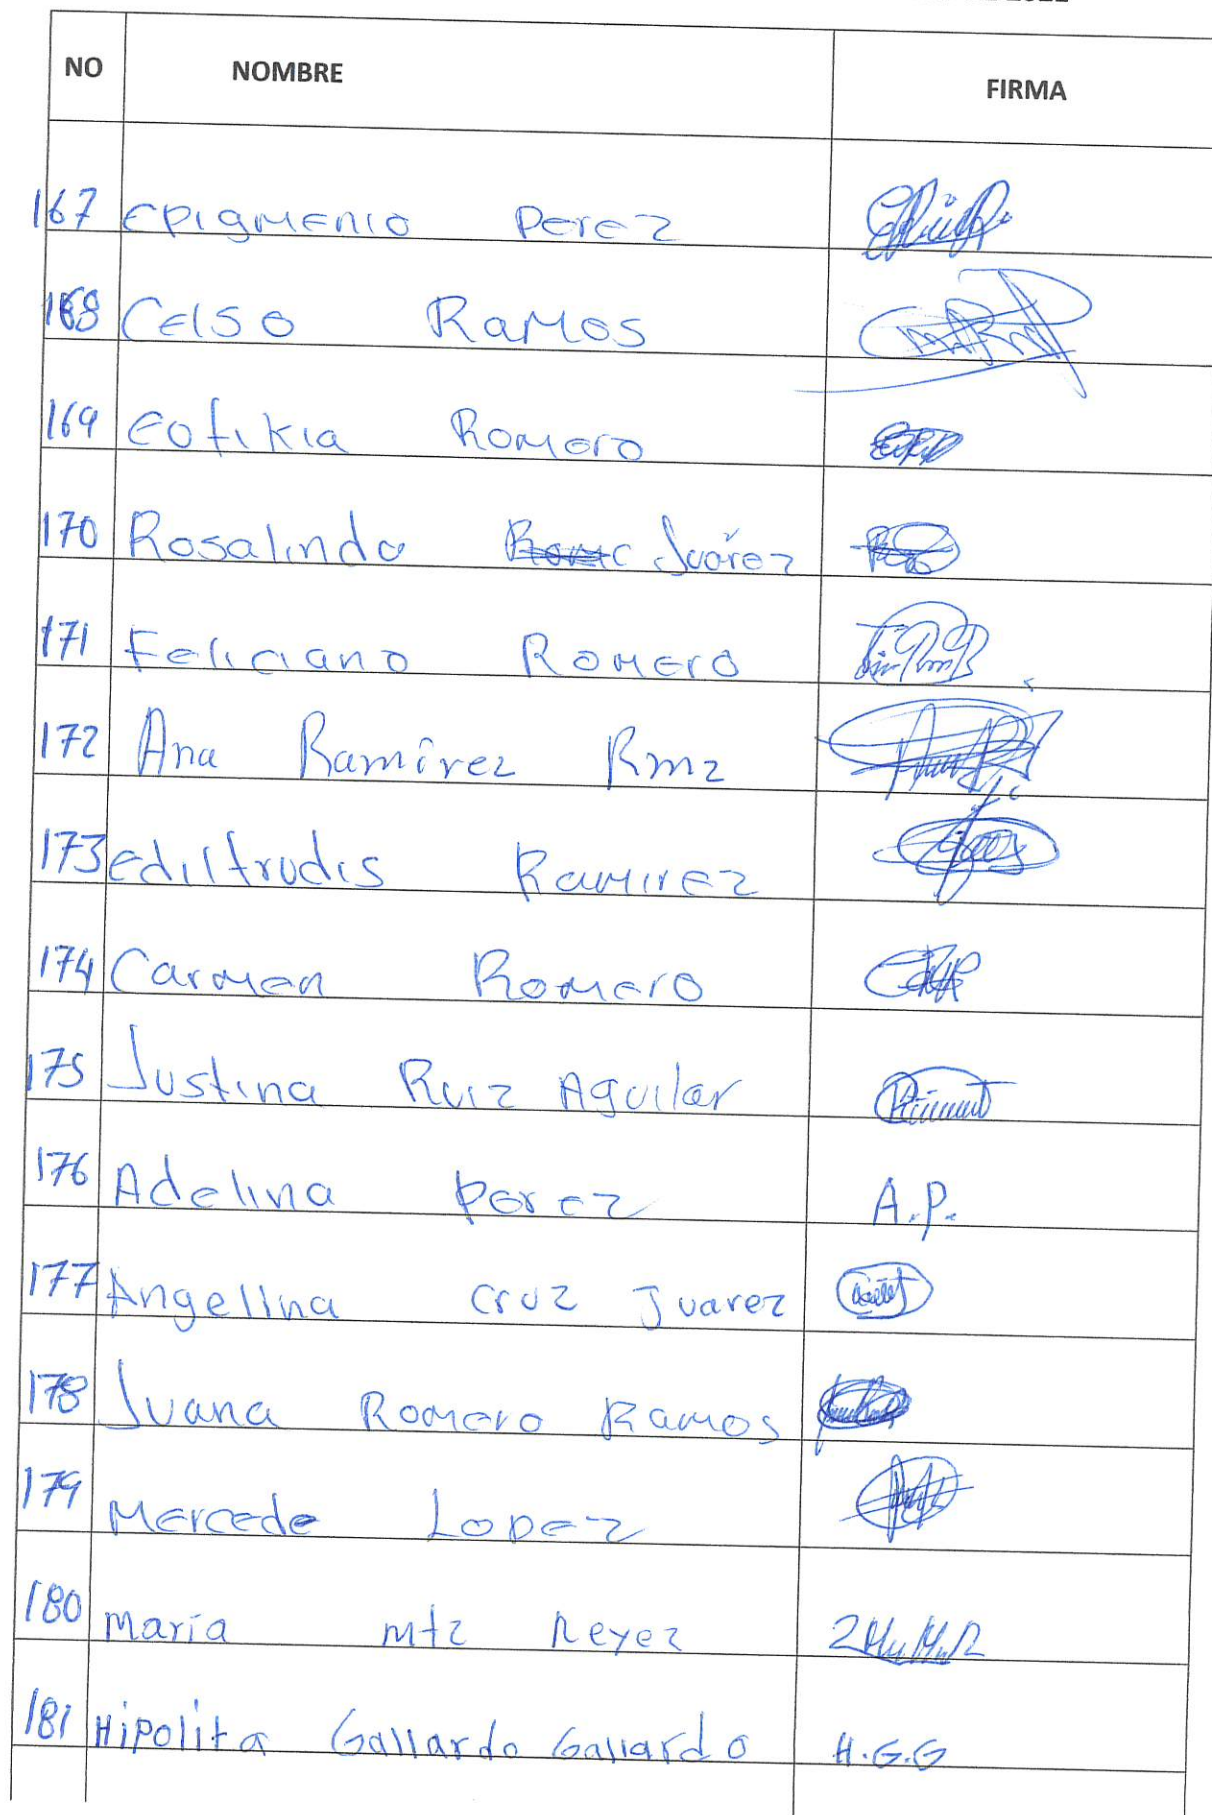 NO NOMBRE FIRMA
167 Epigmenio Perez
168 Celso Ramos
169 Eofikia Romero
170 Rosalinda Juárez
171 Feliciano Romero
172 Ana Ramírez Rmz
173 ediltrudis Ramirez
174 Carmen Romero
175 Justina Ruiz Aguilar
176 Adelina perez A.P.
177 Angelina cruz Juarez
178 Juana Romero Ramos
179 Mercede Lopez
180 María mtz Reyez
181 Hipolita Gallardo Gallardo H.G.G